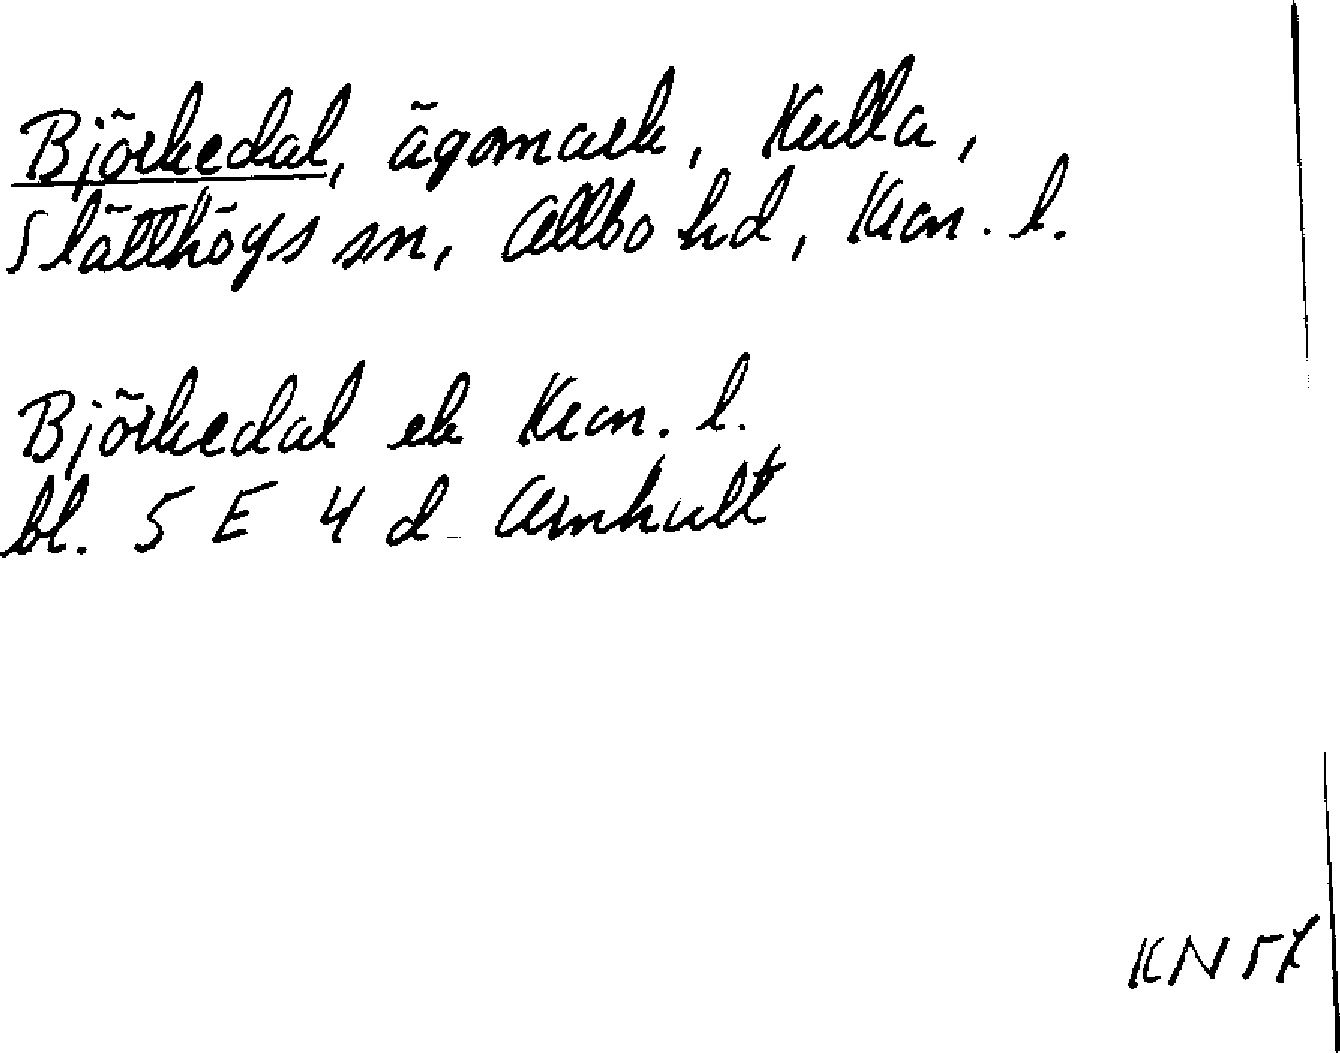 Björkedal, ägomark, Kulla,
Slätthögs sn, Allbo hd, Kron. l.
Björkedal ek Kron. l.
bl. 5 E 4 d Almhult
KN 57